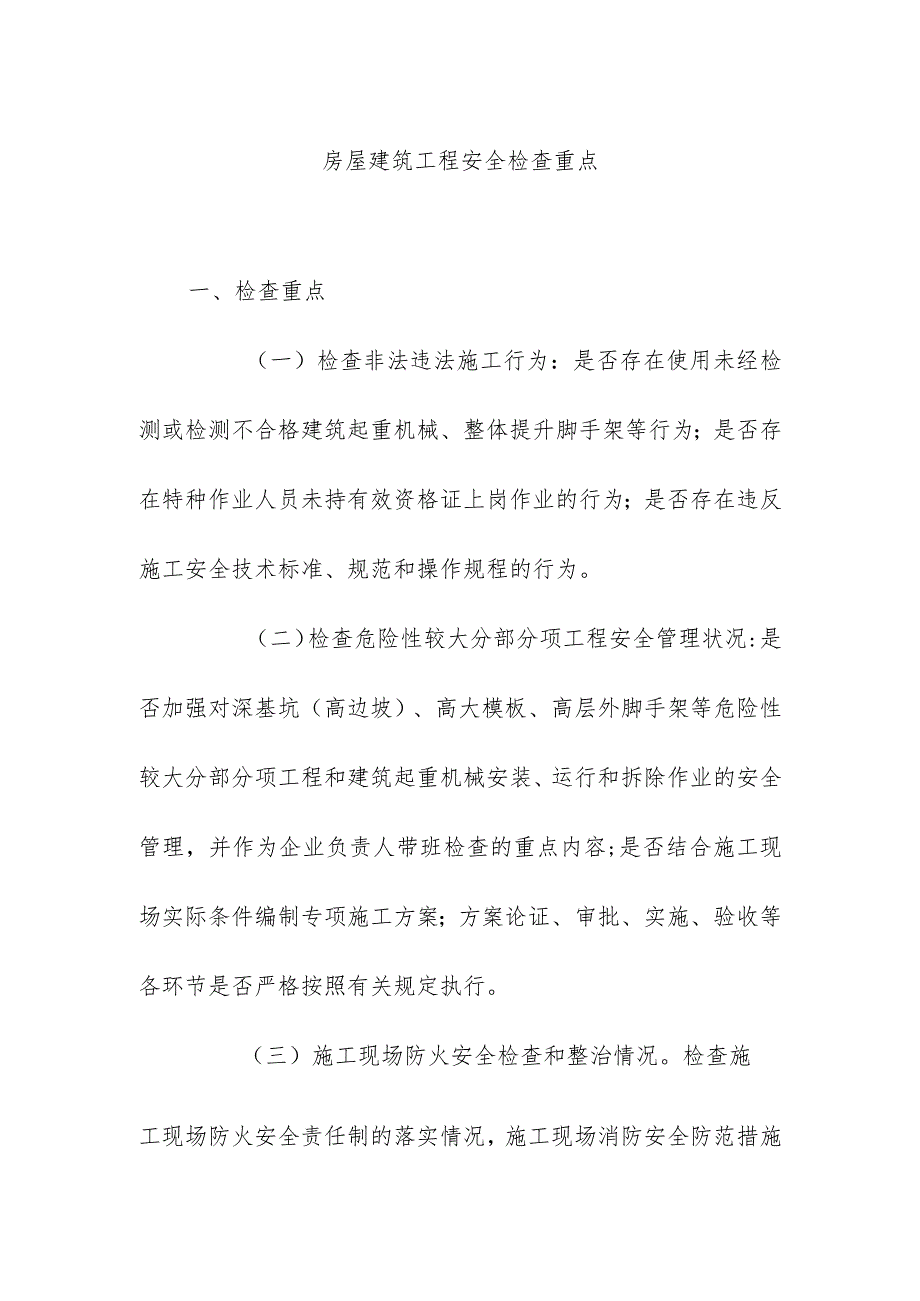 房屋建筑工程安全检查重点
一、检查重点
（一）检查非法违法施工行为：是否存在使用未经检
测或检测不合格建筑起重机械、整体提升脚手架等行为；是否存
在特种作业人员未持有效资格证上岗作业的行为；是否存在违反
施工安全技术标准、规范和操作规程的行为。
（二）检查危险性较大分部分项工程安全管理状况:是
否加强对深基坑（高边坡）、高大模板、高层外脚手架等危险性
较大分部分项工程和建筑起重机械安装、运行和拆除作业的安全
管理，并作为企业负责人带班检查的重点内容;是否结合施工现
场实际条件编制专项施工方案；方案论证、审批、实施、验收等
各环节是否严格按照有关规定执行。
（三）施工现场防火安全检查和整治情况。检查施
工现场防火安全责任制的落实情况，施工现场消防安全防范措施